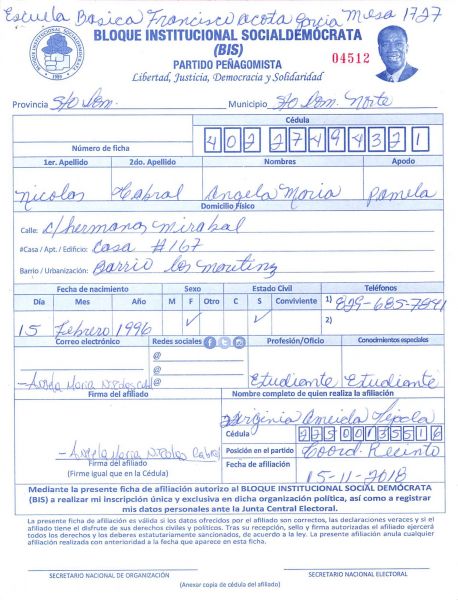 Escuela Basica Francisco acosta
Garcia Mesa 1727
BLOQUE INSTITUCIONAL SOCIALDEMÓCRATA
(BIS)
04512
PARTIDO PEÑAGOMISTA
Libertad, Justicia, Democracia y Solidaridad
Provincia Sto Dom. Municipio Sto Dom. Norte
Cédula
Número de ficha 40227494321
1er. Apellido 2do. Apellido Nombres Apodo
Nicolas Cabral Angela Maria Pamela
Domicilio Físico
Calle: c/hermanas mirabal
#Casa / Apt. / Edificio: Casa #167
Barrio / Urbanización: Barrio los
Fecha de nacimiento Sexo Estado Civil Teléfonos
Día Mes Año M F Otro C S Conviviente 1) 829-685-7841
2)
15 Febrero 1996 ✓ ✓
Correo electrónico Redes sociales Profesión/Oficio Conocimientos espeiales
@
@
@
Estudiante Estudiante
Angela Maria Nicolas
Firma del afiliado Nombre completo de quien realiza la afiliación
Virginia
Cédula 22300135516
Posición en el partido Coord. Recinto
Angela Maria Nicolas Cabral
Firma del afiliado
(Firme igual que en la Cédula)
Fecha de afiliación 15-11-2018
Mediante la presente ficha de afiliación autorizo al BLOQUE INSTITUCIONAL SOCIAL DEMÓCRATA
(BIS) a realizar mi inscripción única y exclusiva en dicha organización política, así como a registrar
mis datos personales ante la Junta Central Electoral.
La presente ficha de afiliación es válida si los datos ofrecidos por el afiliado son correctos, las declaraciones veraces y si el
afiliado tiene el disfrute de sus derechos civiles y políticos. Tras su recepción, sello y firma autorizadas el afiliado ejercerá
todos los derechos y los deberes estatutariamente sancionados, de acuerdo a la ley. La presente afiliación anula cualquier
afiliación realizada con anterioridad a la fecha que aparece en esta ficha.
SECRETARIO NACIONAL DE ORGANIZACIÓN SECRETARIO NACIONAL ELECTORAL
(Anexar copia de cédula del afiliado)